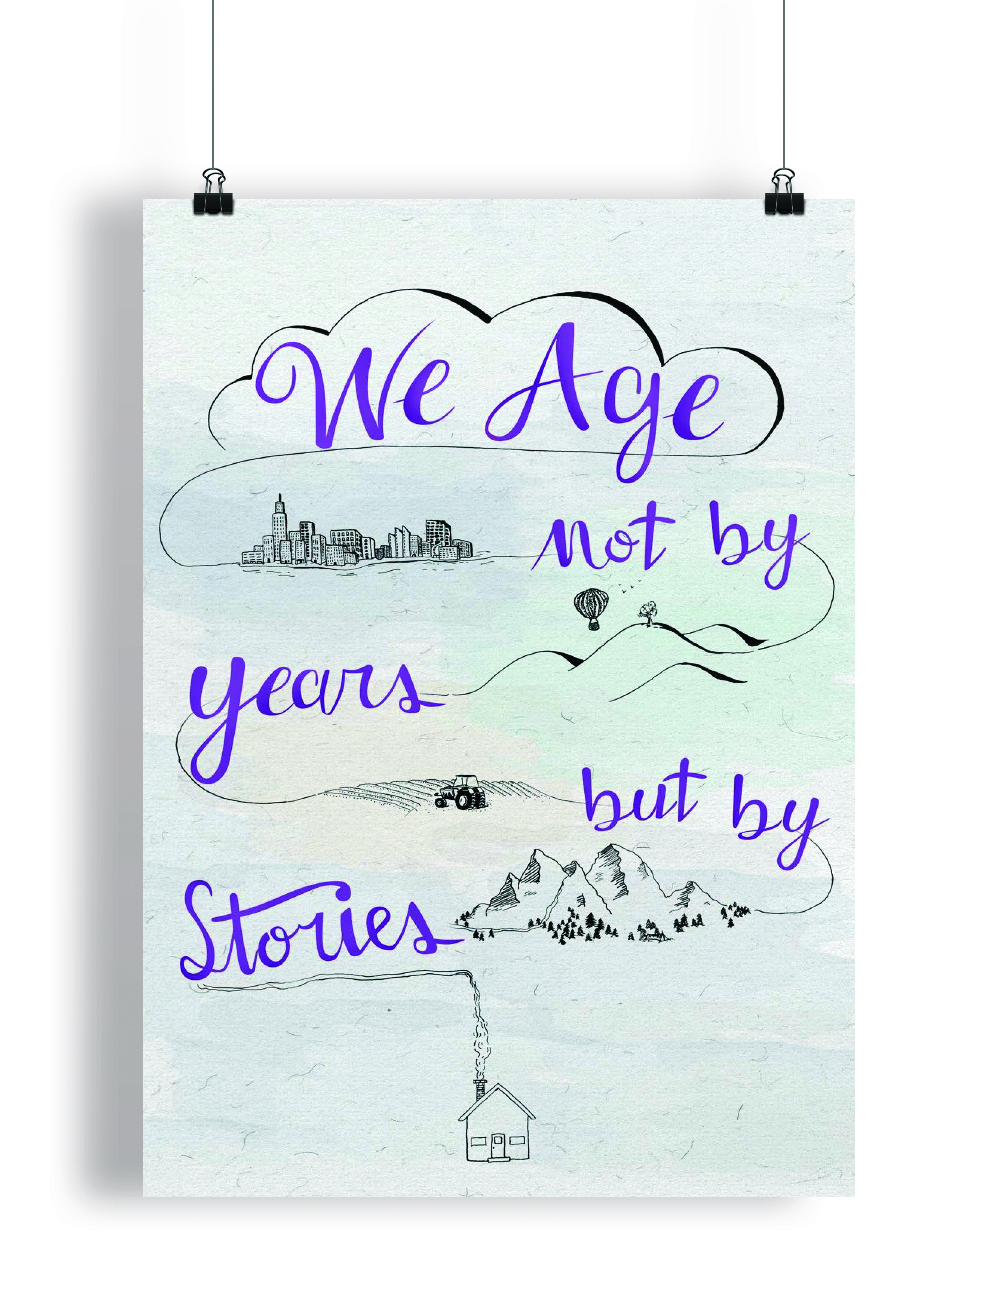 We Age
not by
years
but by
Stories